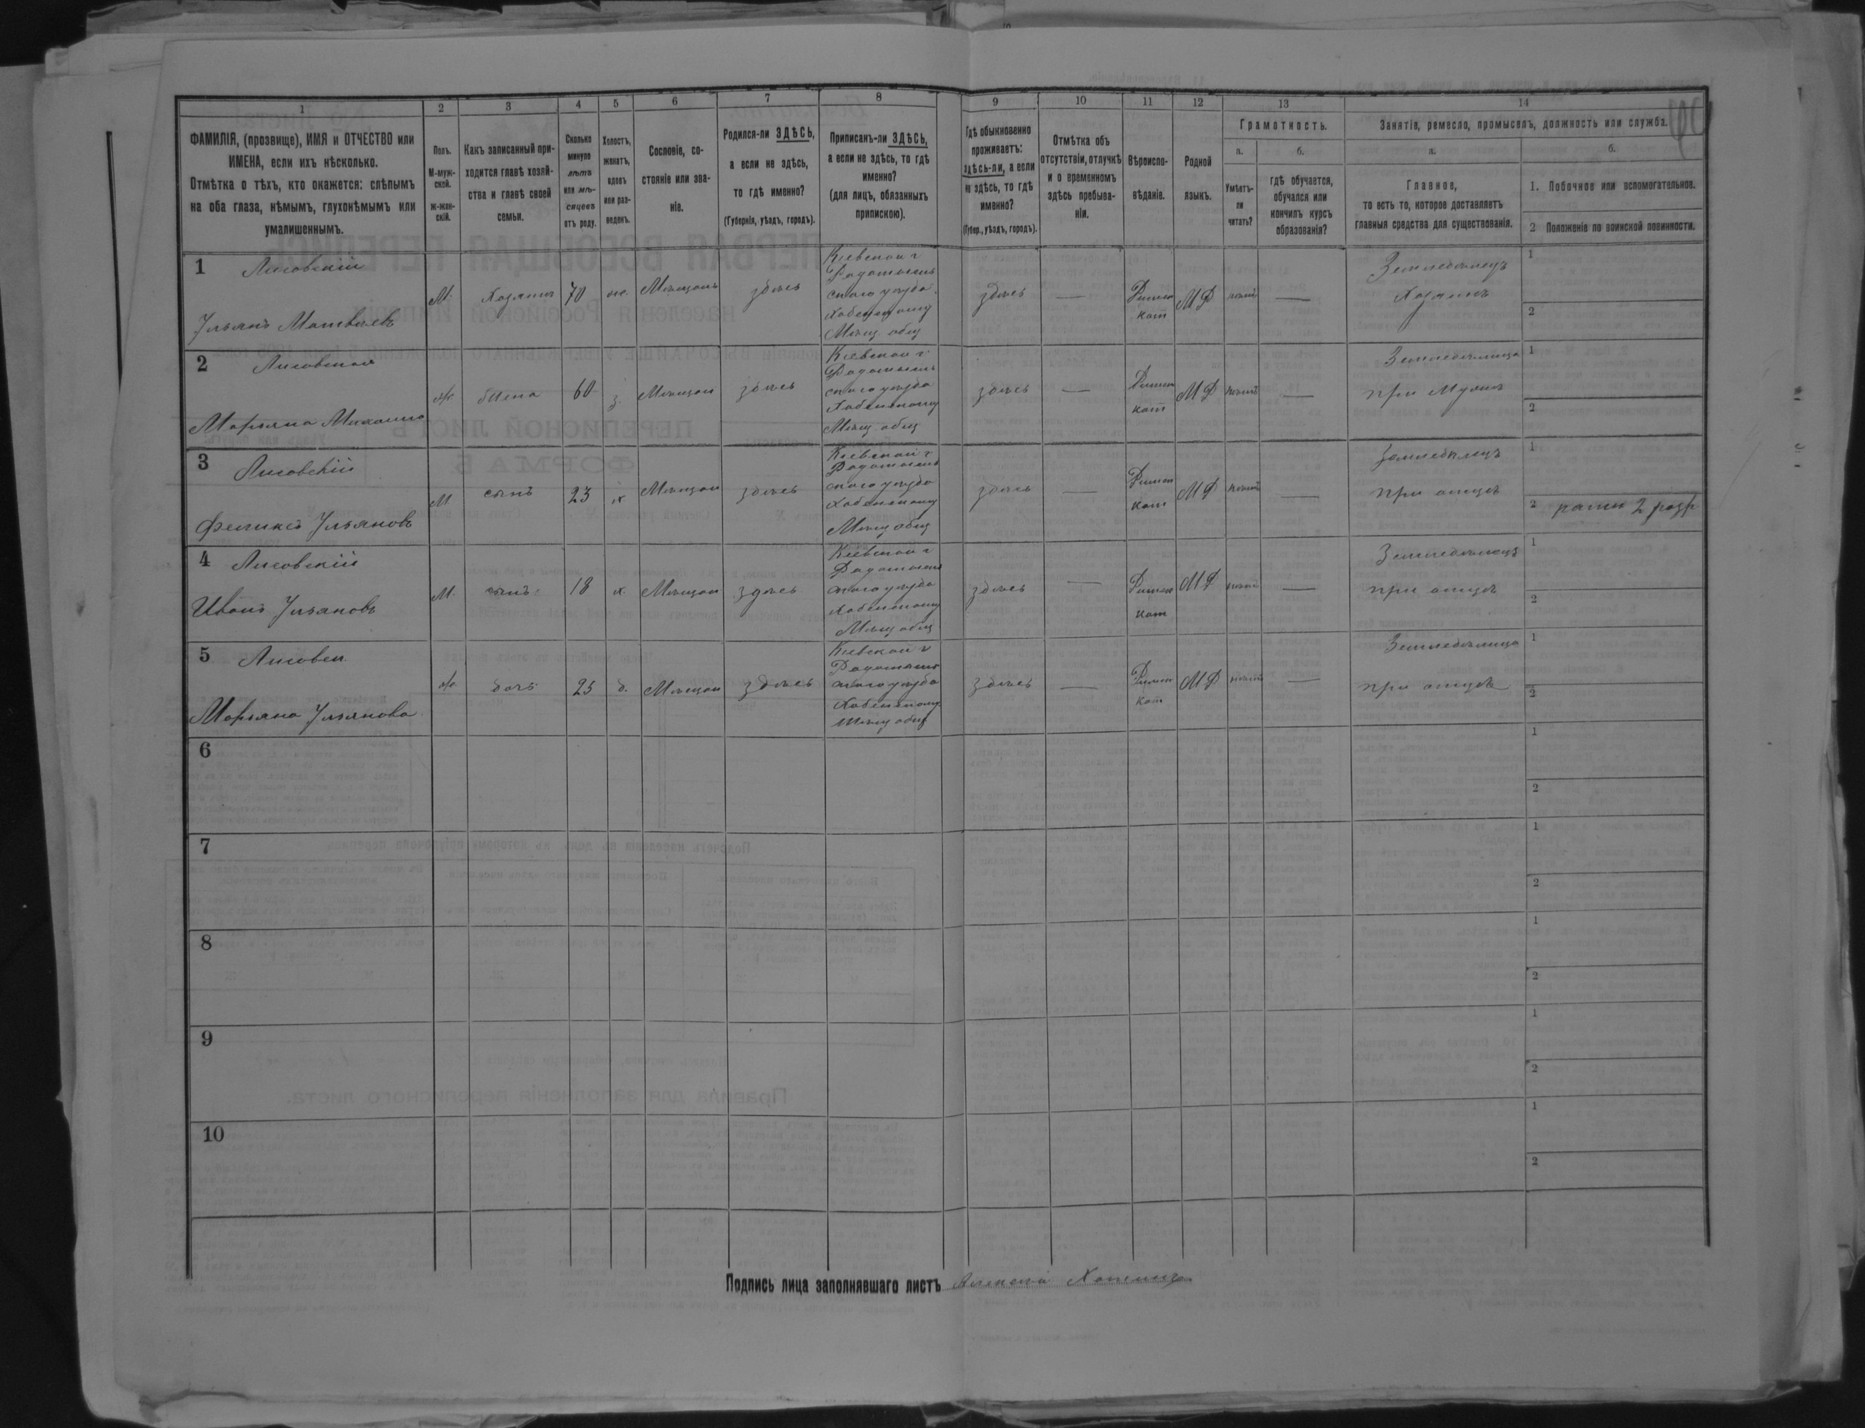 1 2 3 4 5 6 7 8 9 10 11 12 13 14
ФАМИЛІЯ, (прозвище), ИМЯ и ОТЧЕСТВО или
ИМЕНА, если ихъ нѣсколько.
Отмѣтка о тѣхъ, кто окажется: слѣпымъ
на оба глаза, нѣмымъ, глухонѣмымъ или
умалишеннымъ.
Полъ.
М-муж-
ской.
ж-жен-
скій.
Какъ записанный при-
ходится главѣ хозяй-
ства и главѣ своей
семьи.
Сколько
минуло
лѣтъ
или мѣ-
сяцевъ
отъ роду.
Холостъ,
женатъ,
вдовъ
или раз-
веденъ.
Сословіе, со-
стояніе или зва-
ніе.
Родился-ли ЗДѢСЬ,
а если не здѣсь,
то гдѣ именно?
(Губернія, уѣздъ, городъ).
Приписанъ-ли ЗДѢСЬ,
а если не здѣсь, то гдѣ
именно?
(для лицъ, обязанныхъ
припискою).
Гдѣ обыкновенно
проживаетъ:
здѣсь-ли, а если
не здѣсь, то гдѣ
именно?
(Губер., уѣздъ, городъ).
Отмѣтка объ
отсутствіи, отлучкѣ
и о временномъ
здѣсь пребыва-
ніи.
Вѣроиспо-
вѣданіе.
Родной
языкъ.
Грамотность.
а. б.
Умѣетъ-
ли
читать?
гдѣ обучается,
обучался или
кончилъ курсъ
образованія?
Занятіе, ремесло, промыселъ, должность или служба.
а. б.
Главное,
то есть то, которое доставляетъ
главныя средства для существованія.
1. Побочное или вспомогательное.
2 Положеніе по воинской повинности.
1 Лисовскій
Ульянъ Матвѣевъ
М. Хозяинъ 70 Мѣщан здѣсь
Кіевской г
Радомысль
скаго уѣзда
Мѣщ общ
здѣсь — Римск
кат —
Земледѣлецъ
Хозяинъ
1
2
2 Лисовская
Марьяна
ж. жена 60 з. Мѣщан здѣсь
Кіевской г
Радомысль
скаго уѣзда
Мѣщ общ
здѣсь — Римск
кат —
Земледѣлица
при мужѣ
1
2
3 Лисовскій
Феликсъ Ульяновъ
М сынъ 23 х Мѣщан здѣсь
Кіевской г
Радомысль
скаго уѣзда
Мѣщ общ
здѣсь — Римск
кат —
Земледѣлецъ
при отцѣ
1
2 ратн 2 разр
4 Лисовскій
Иванъ Ульяновъ
М. сынъ 18 х. Мѣщан здѣсь
Кіевской г
Радомысль
скаго уѣзда
Мѣщ общ
здѣсь — Римск
кат —
Земледѣлецъ
при отцѣ
1
2
5
Марьяна Ульянова
ж. дочь 25 д. Мѣщан здѣсь
Кіевской г
Радомысль
скаго уѣзда
Мѣщ общ
здѣсь — Римск
кат —
Земледѣлица
при отцѣ
1
2
6
1
2
7
1
2
8
1
2
9
1
2
10
1
2
Подпись лица заполнявшаго листъ Алексѣй